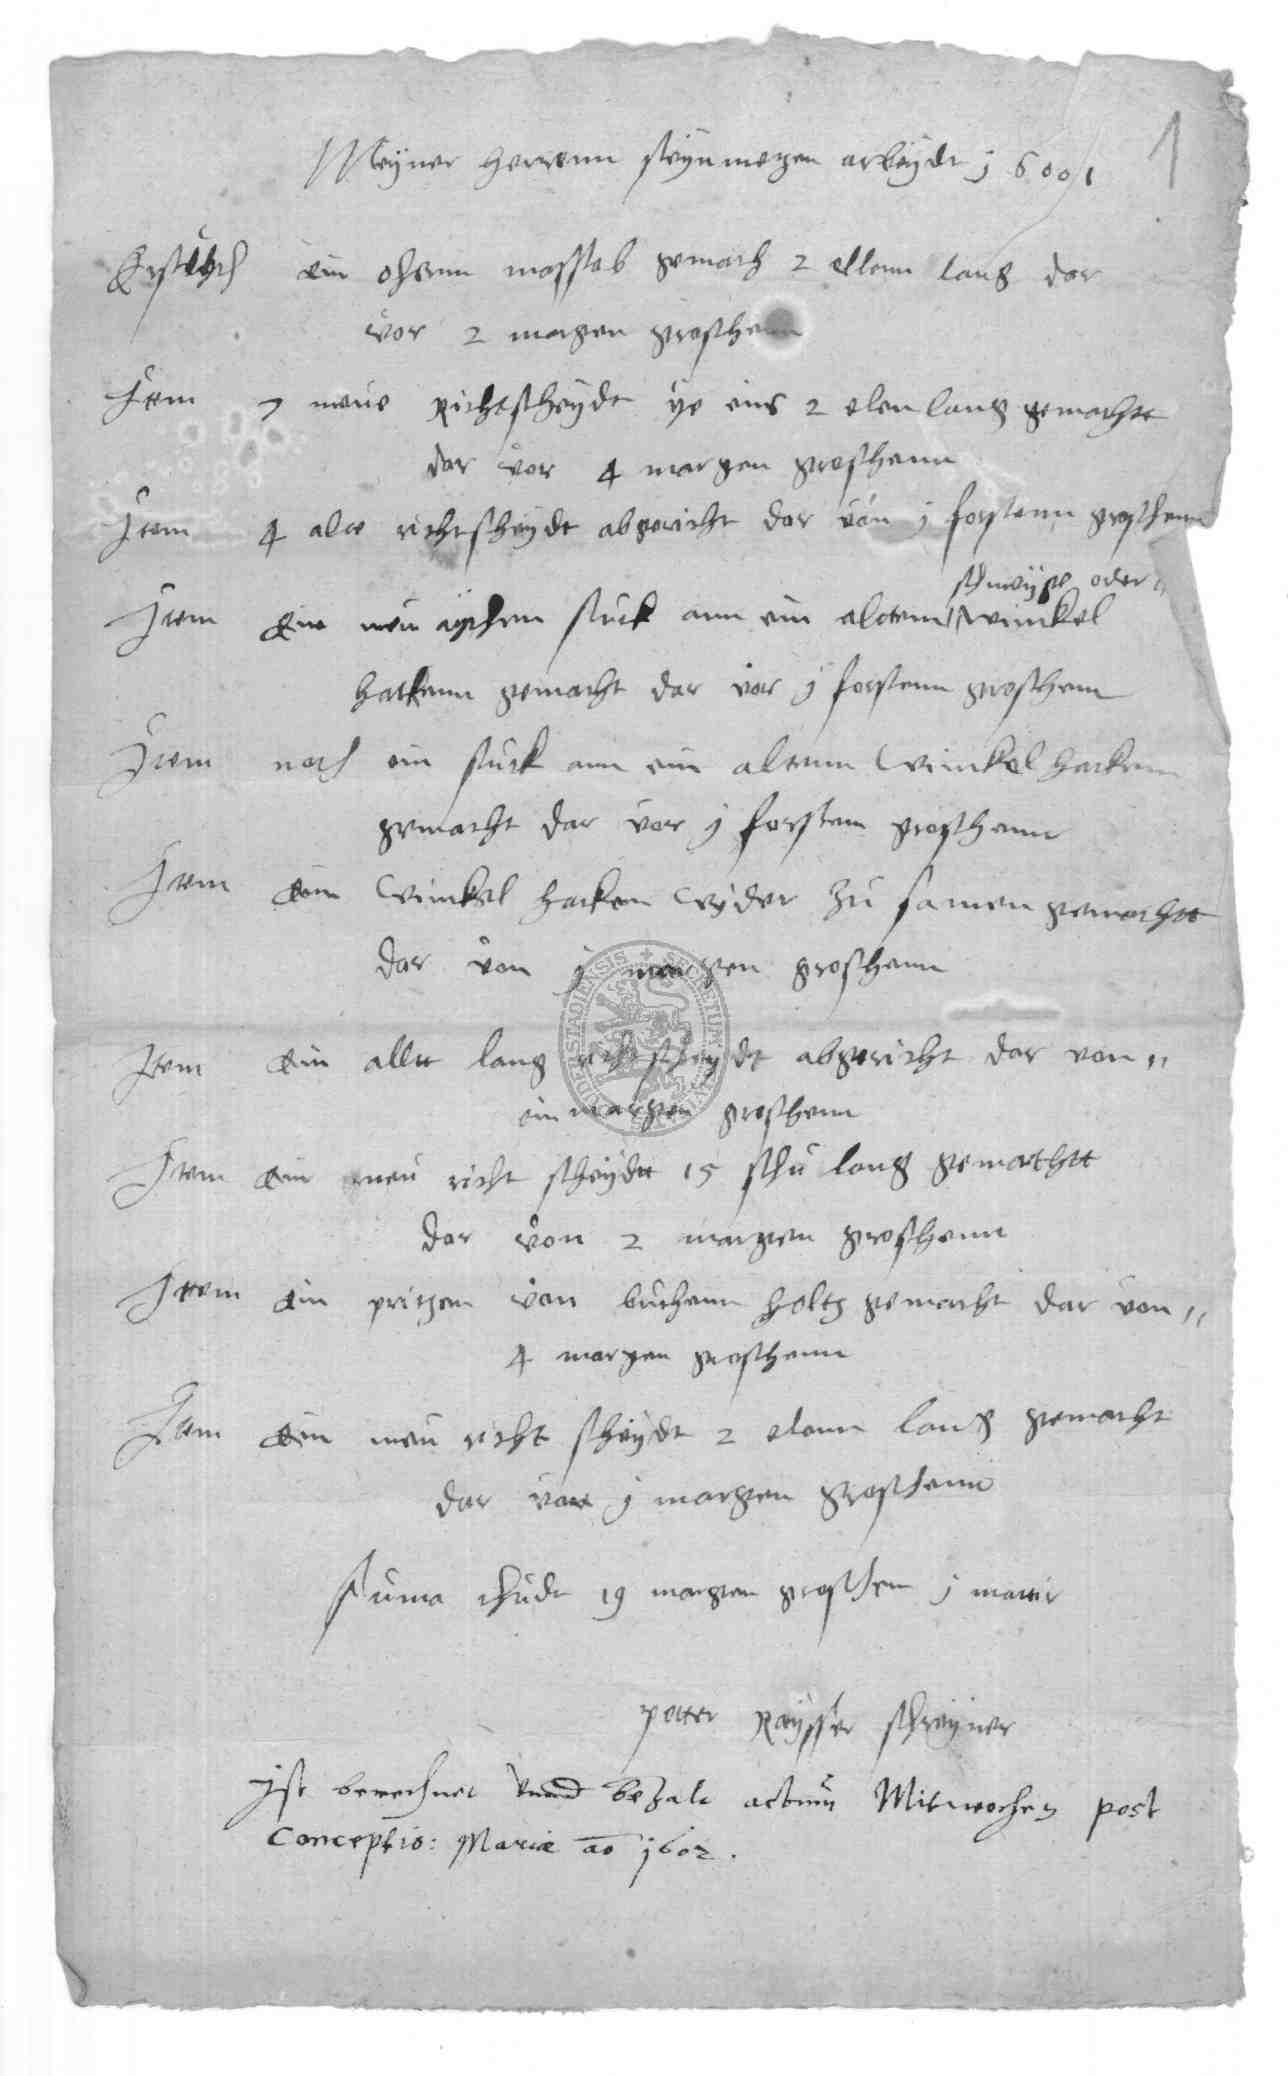 1
Meyner herrenn steynmezen arbeydt j600/1
Erstlich ein ohernn masstab gemach 2 ellenn lang dar
vor 2 margen groschenn
Item 7 neue Richtscheydt ye eins 2 elen lang gemachtt
dar vor 4 margen groschenn
Item 4 alte richtscheydt abgericht dar von j forstenn groschenn
schmeyge oder
Item ein neu aychen stuck ann ein altenn winckel
hackenn gemacht dar vor j forstenn groschenn
Item noch ein stuck ann ein altenn winckel hacken
gemacht dar vor j forstenn groschenn
Item ein winckel hacken wyder zu samen gemachtt
dar von j margen groschenn
Item ein altt lang richtscheydt abgericht dar von "
ein margen groschenn
Item ein neu richt scheydtt 15 schu lang gemachtt
dar von 2 margen groschenn
Item ein pritzen von buchenn holtz gemacht dar von "
4 margen groschenn
Item ein neu richt scheydt 2 elenn lang gemacht
dar von j margen groschenn
suma thudt 19 margen groschen j mattir
petter Raysser schreyner
Ist berechnet vnnd bezalt actum Mitwochen post
Conceptio: Mariæ ao 1602.